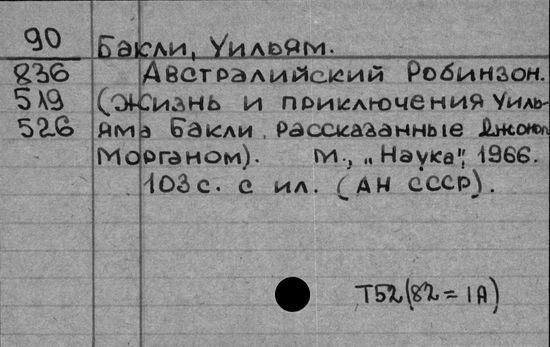 90 Бакли, Уильям.
836 Австралийский Робинзон.
519 (Жизнь и приключения Уиль-
526 яма Бакли, рассказанные Джоном
Морганом). М., „Наука", 1966.
103 с. с ил. (АН СССР).
Т52(82=1А)